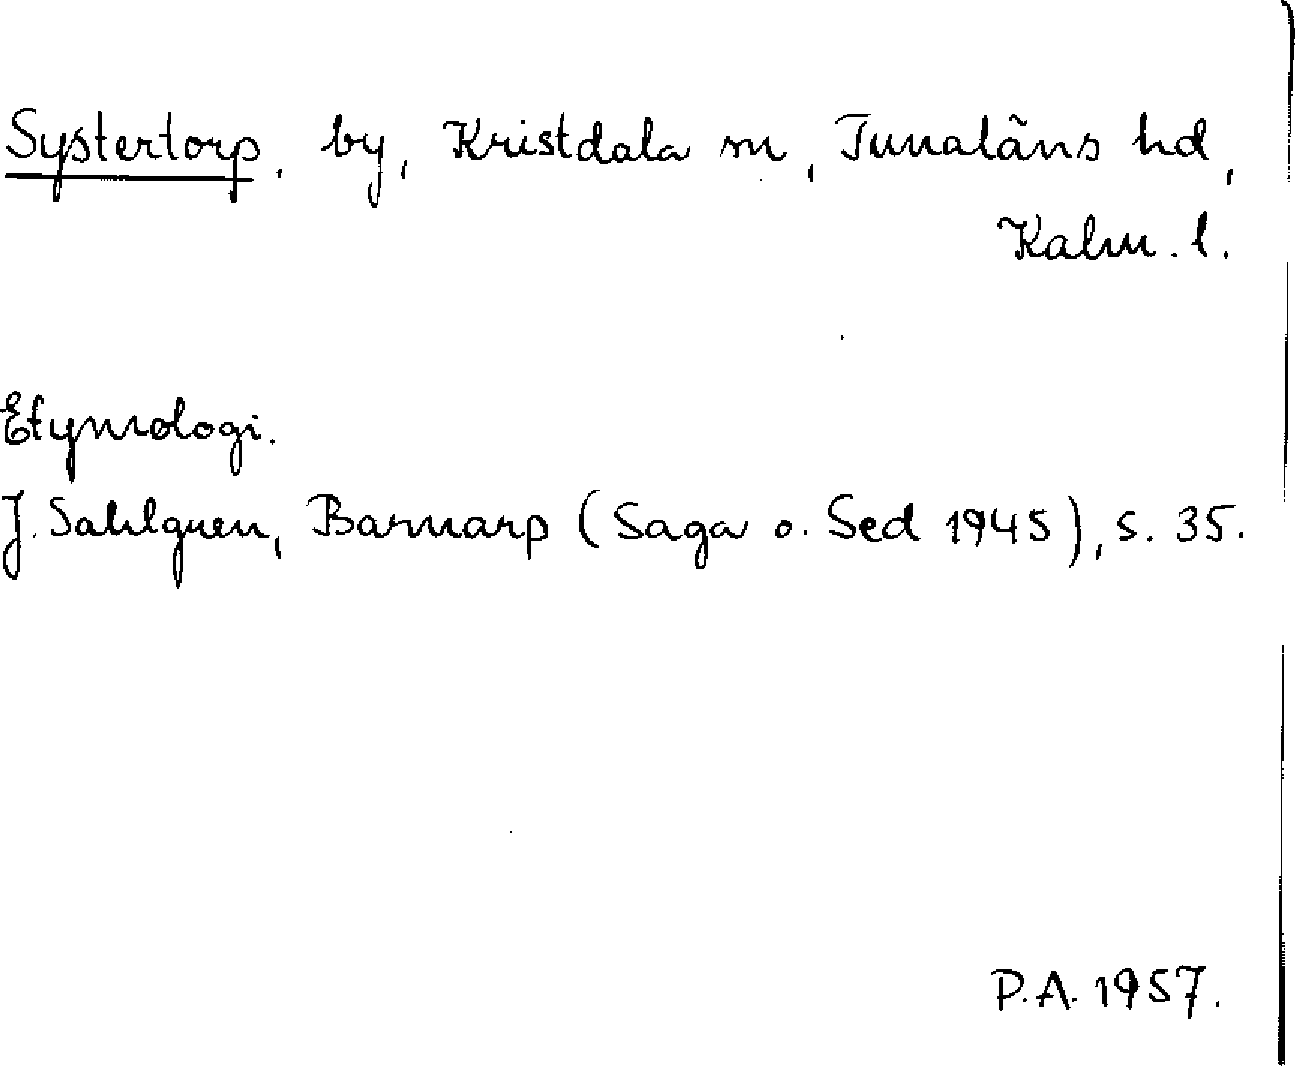 Systertorp, by, Kristdala sn, Tunaläns hd,
Kalm. l.
Etymologi.
J. Sahlgren, Barnarp (Saga o. Sed 1945), s. 35.
P.A. 1957.